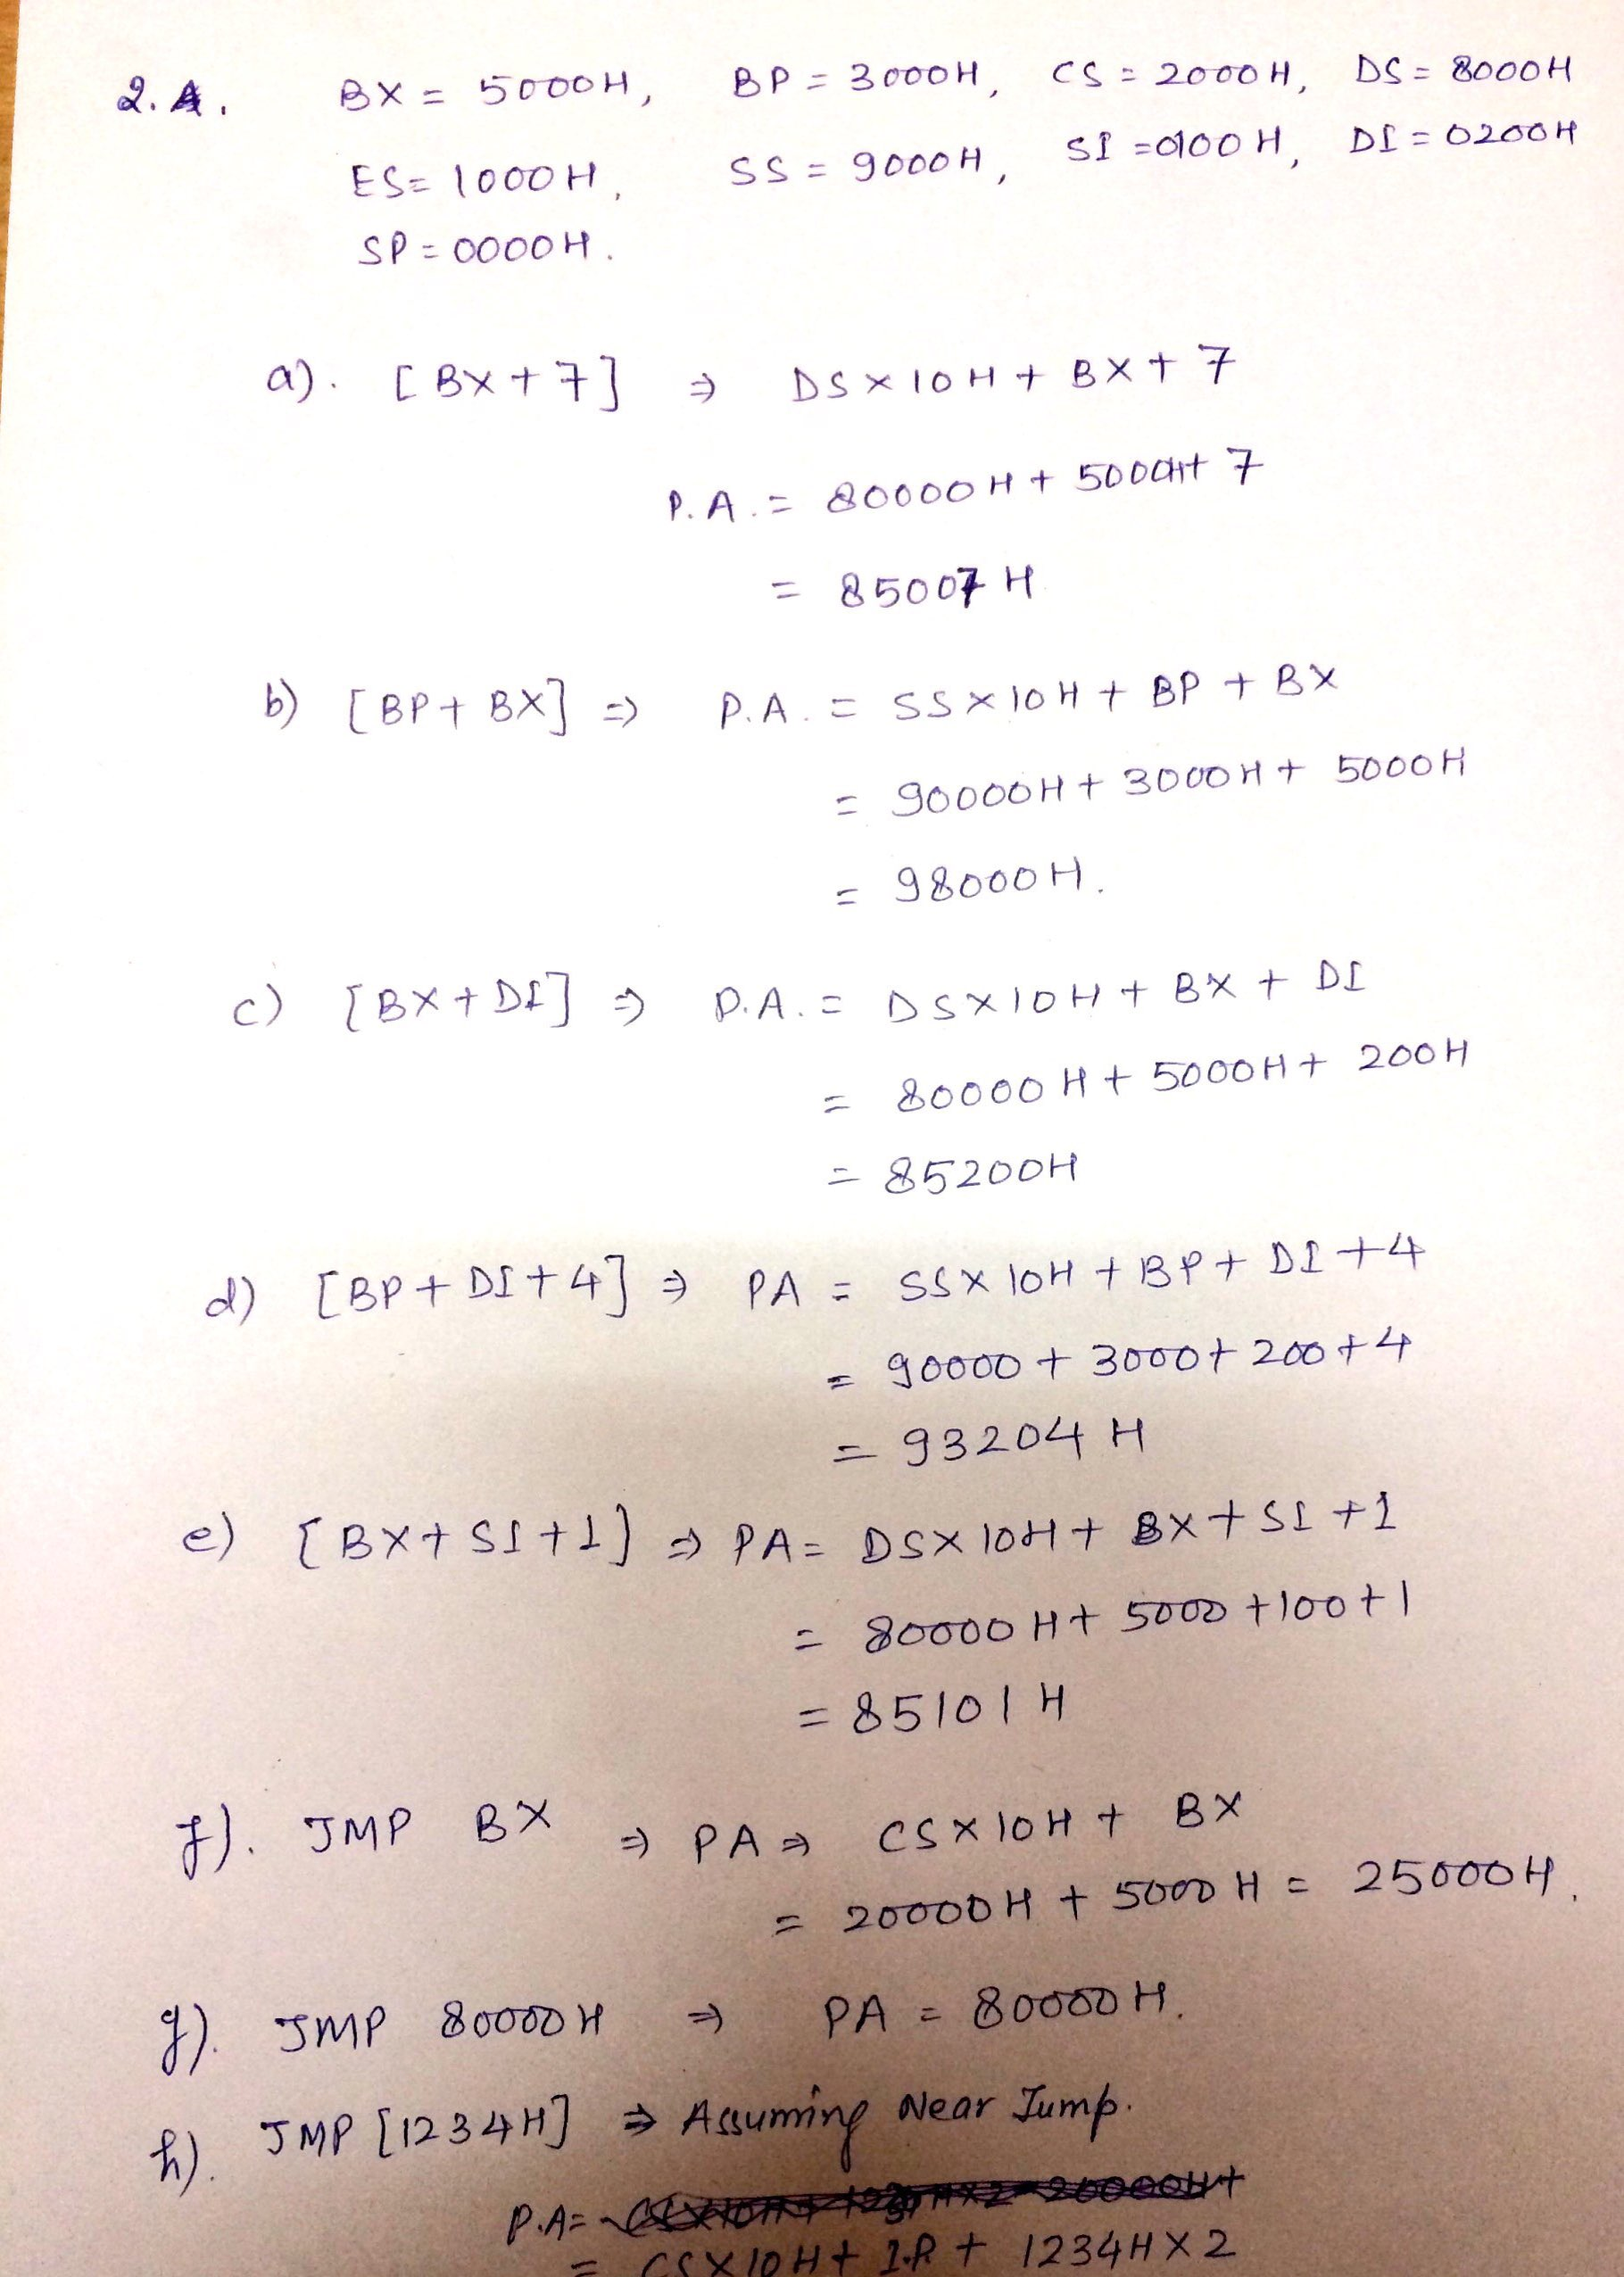 2.A. BX = 5000H, BP = 3000H, CS = 2000H, DS = 8000H
ES = 1000H, SS = 9000H, SI = 0100H, DI = 0200H
SP = 0000H.
a). [BX + 7] ⇒ DS × 10H + BX + 7
P.A. = 80000H + 5000H + 7
= 85007H
b) [BP + BX] ⇒ P.A. = SS × 10H + BP + BX
= 90000H + 3000H + 5000H
= 98000H.
c) [BX + DI] ⇒ P.A. = DS × 10H + BX + DI
= 80000H + 5000H + 200H
= 85200H
d) [BP + DI + 4] ⇒ PA = SS × 10H + BP + DI + 4
= 90000 + 3000 + 200 + 4
= 93204H
e) [BX + SI + 1] ⇒ PA = DS × 10H + BX + SI + 1
= 80000H + 5000 + 100 + 1
= 85101H
f). JMP BX ⇒ PA ⇒ CS × 10H + BX
= 20000H + 5000H = 25000H.
g). JMP 80000H ⇒ PA = 80000H.
h). JMP [1234H] ⇒ Assuming Near Jump.
P.A =
= CS × 10H + I.P + 1234H × 2